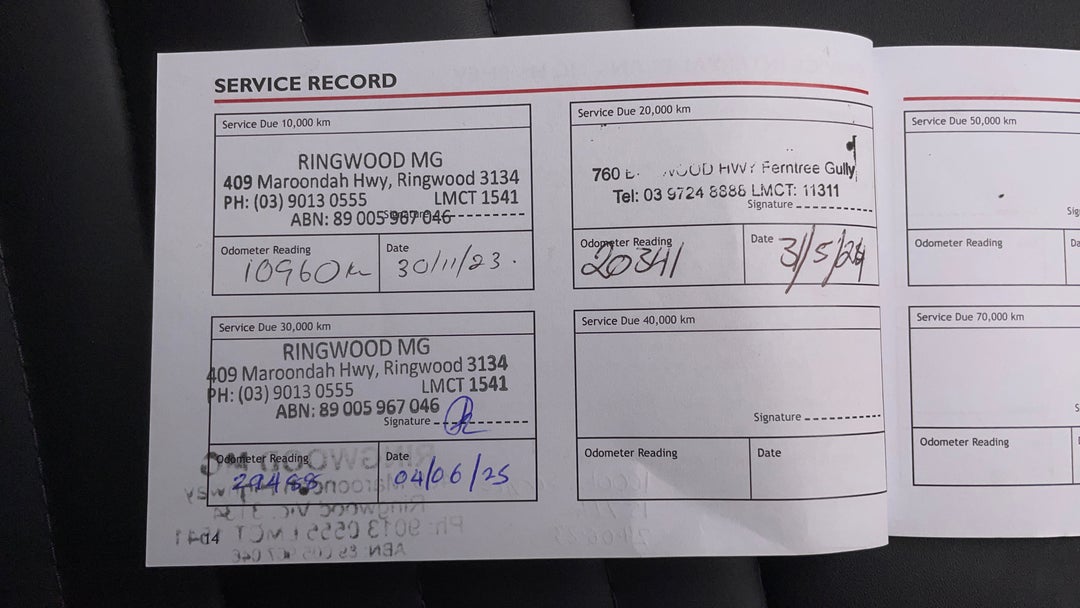 SERVICE RECORD
Service Due 10,000 km
RINGWOOD MG
409 Maroondah Hwy, Ringwood 3134
PH: (03) 9013 0555 LMCT 1541
ABN: 89 005 967 046
Signature
Odometer Reading
10960km
Date
30/11/23.
Service Due 20,000 km
760 HWY Ferntree Gully
Tel: 03 9724 8888 LMCT: 11311
Signature
Odometer Reading
20341
Date
31/5/24
Service Due 30,000 km
RINGWOOD MG
409 Maroondah Hwy, Ringwood 3134
PH: (03) 9013 0555 LMCT 1541
ABN: 89 005 967 046
Signature
Odometer Reading
29488
Date
04/06/25
Service Due 40,000 km
Signature
Odometer Reading
Date
14
Service Due 50,000 km
Odometer Reading
Service Due 70,000 km
Odometer Reading